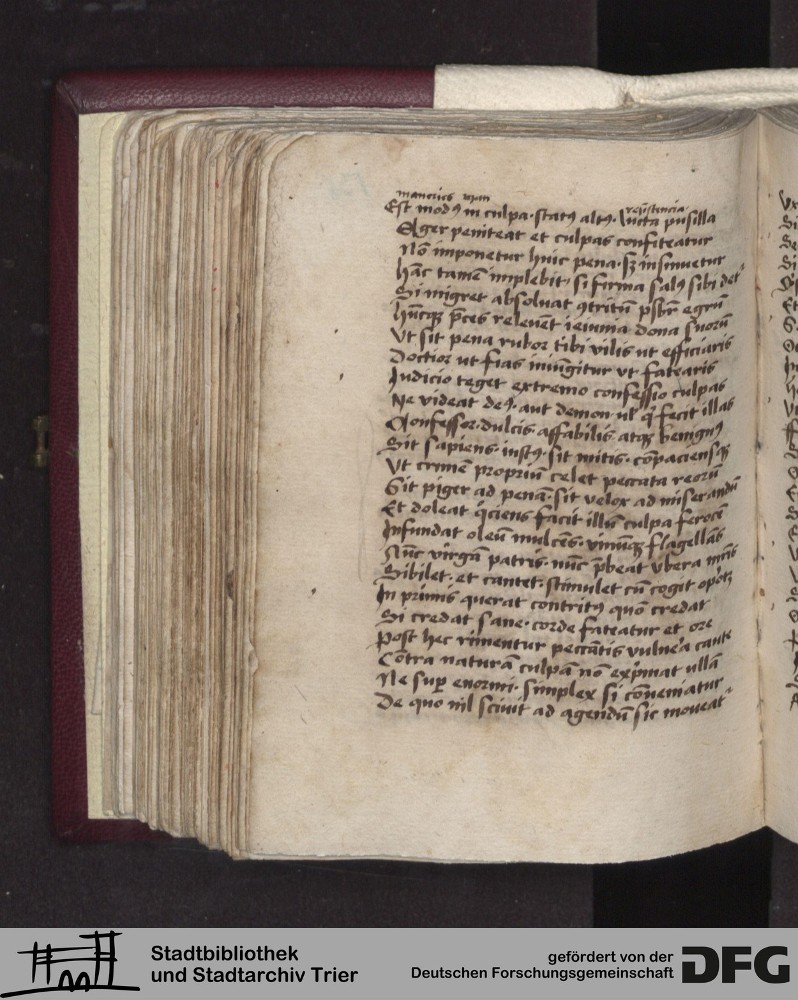 maneries
Est modꝰ in culpa · statꝰ altꝰ · lucta pusilla
Eger peniteat et culpas confiteatur
Nō imponetur huic pena · sꝫ insinuetur
hāc tamē implebit · si firma salꝰ sibi det'
Si migret absoluat ꝯtritū psb̄r egrū
hūcqꝫ p̄ces releuēt ieiunia dona suorū
Ut sit pena rubor tibi vilis ut efficiaris
Doctior ut fias iniūgitur ut fatearis
Iudicio teget extremo confessio culpas
Ne videat deꝰ · aut demon · ul' qͥ fecit illas
Confessor · dulcis · affabilis · atqꝫ benignꝰ
Sit sapiens · iustꝰ · sit mitis · cōpaciensqꝫ
Ut crimē propriū celet peccata reorū
Sit piger ad penā · sit velox ad miserandū
Et doleat qͦciens facit illū culpa ferocē
Infundat oleū mulcēs · vinūqꝫ flagellās
Nūc virgā patris · nūc p̄beat vbera mr̄is
Sibilet · et cantet · stimulet cū cogit oportꝫ
In primis querat contritꝰ quō credat
Si credat sane · corde fateatur et ore
Post hec rimentur peccātis vulnera caute
Cōtra naturā culpā nō exp̄mat ullā
Ne sup̄ enormi · simplex si cōueniatur
De quo nil sciuit ad agendū sic moueat'
Stadtbibliothek
und Stadtarchiv Trier
gefördert von der
Deutschen Forschungsgemeinschaft
DFG